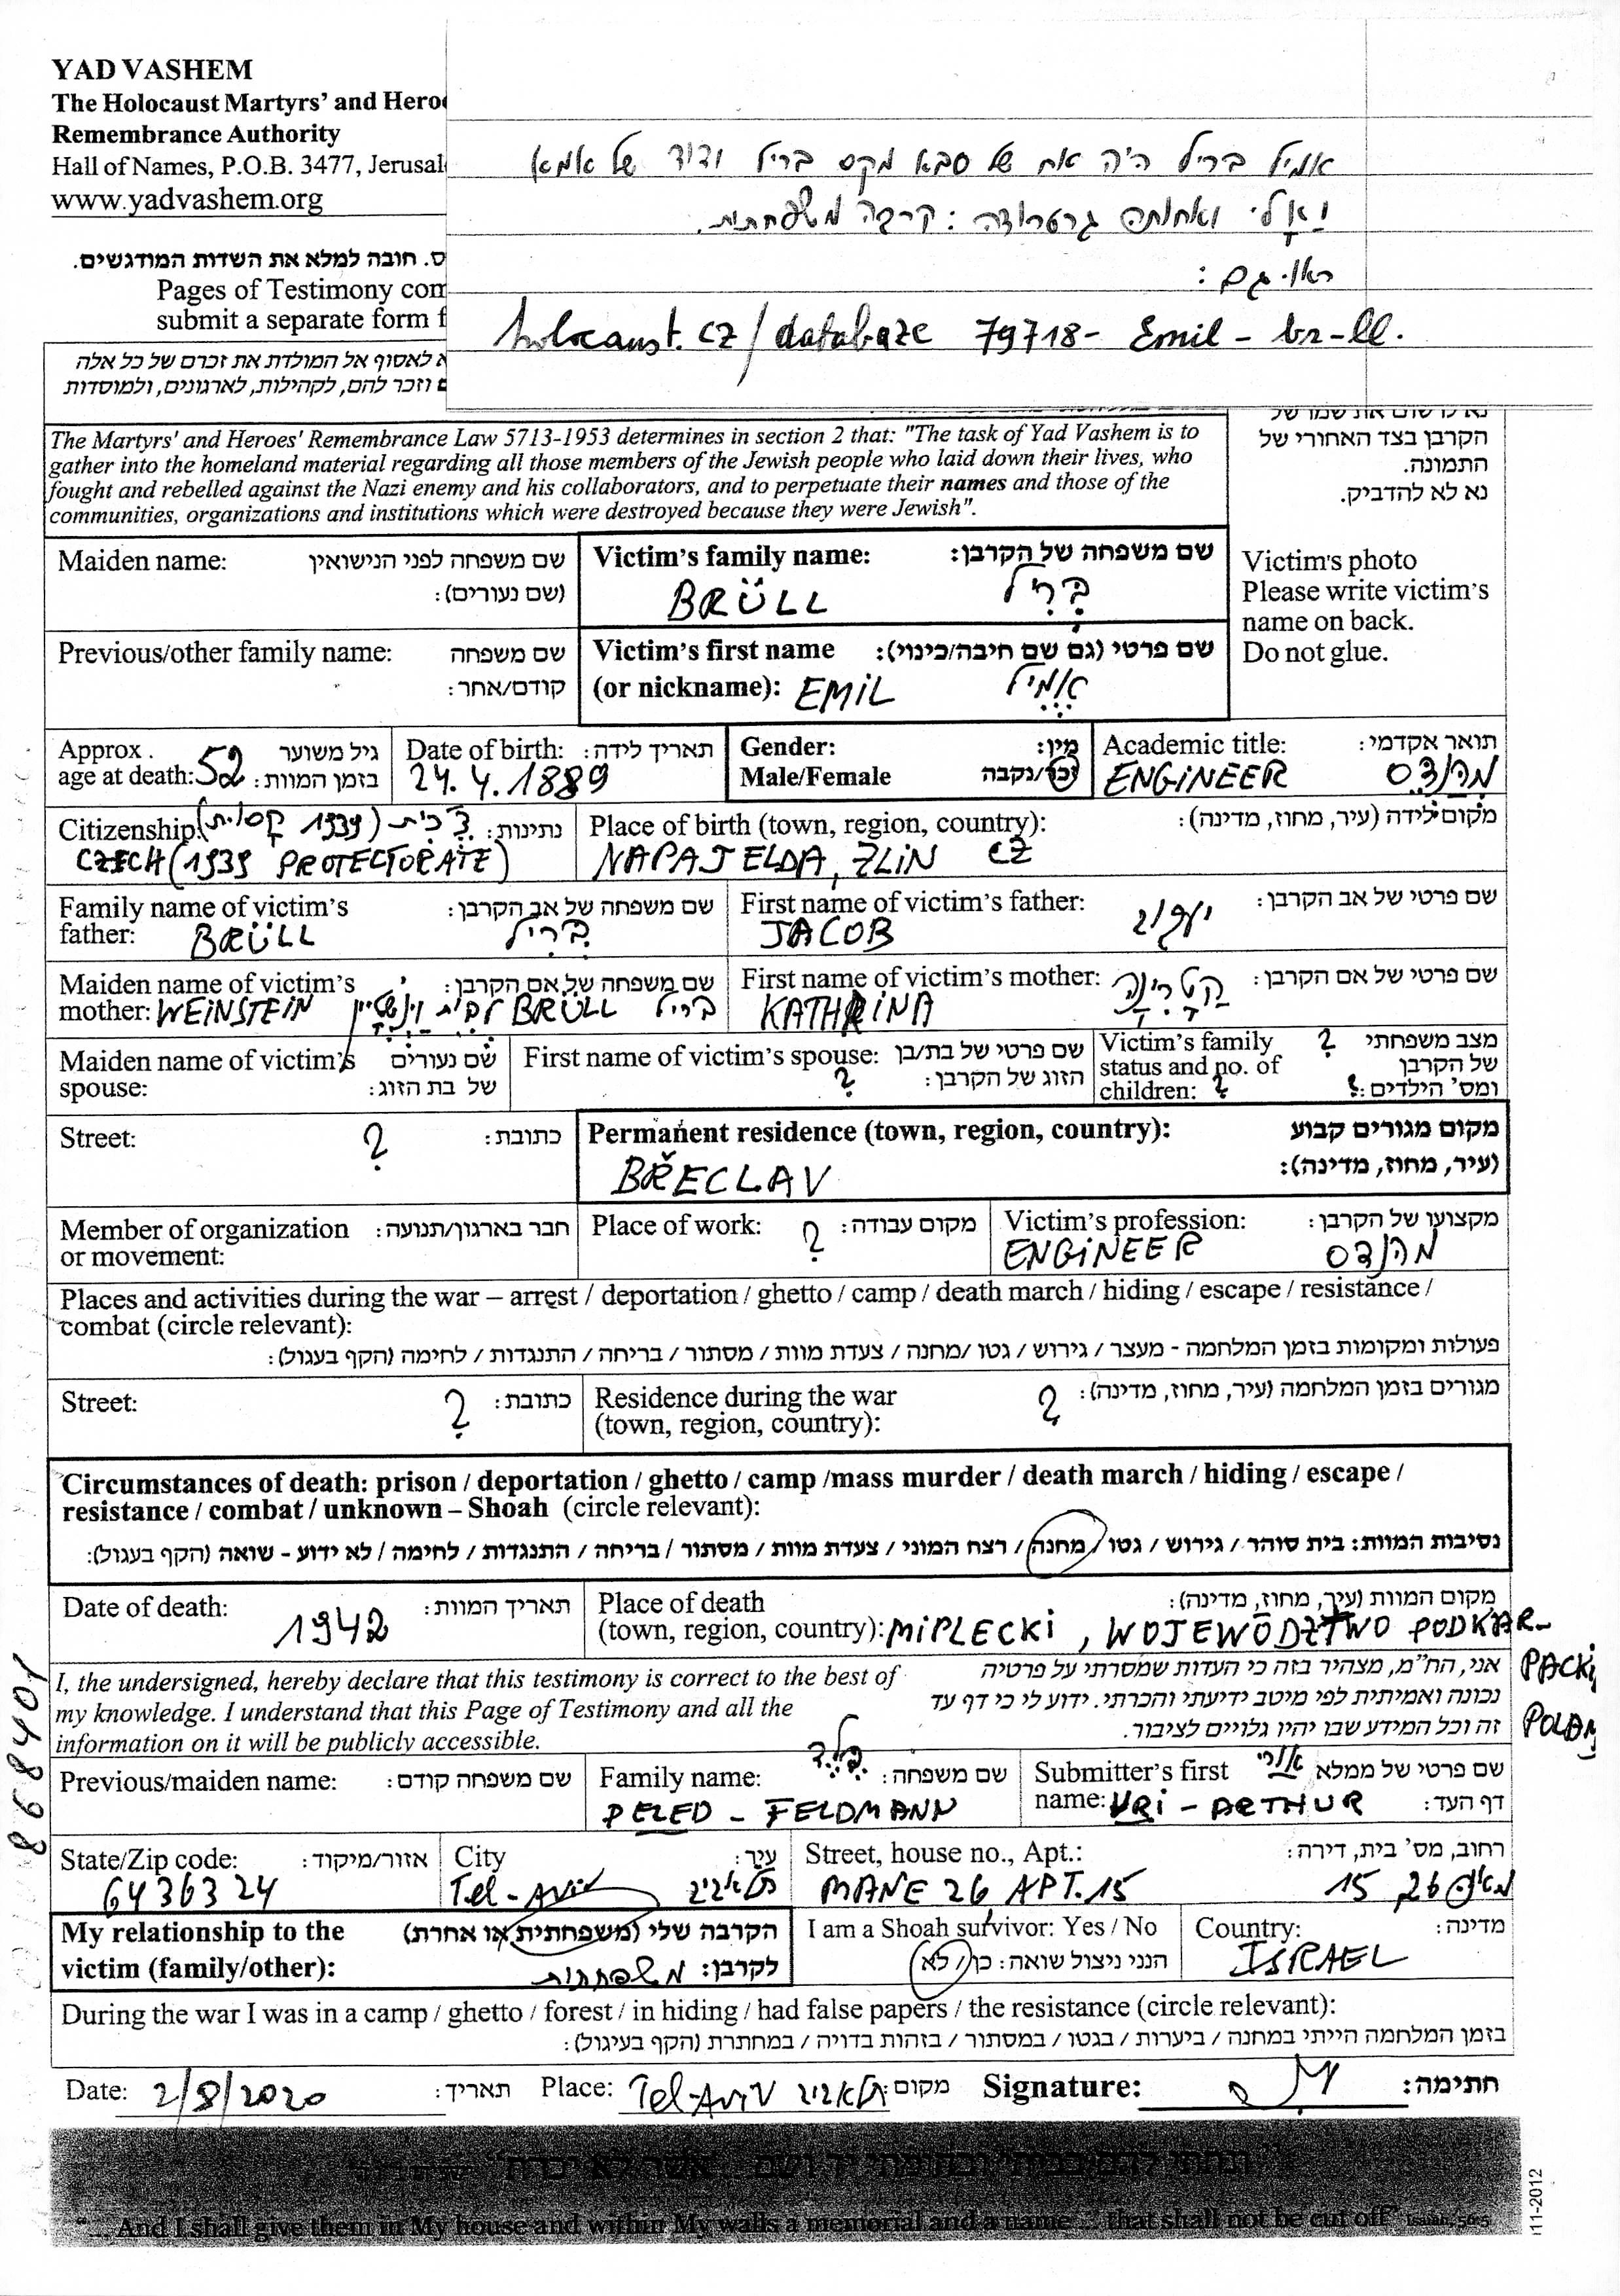 YAD VASHEM
The Holocaust Martyrs' and Heroe
Remembrance Authority
Hall of Names, P.O.B. 3477, Jerusal
www.yadvashem.org
אמיל בריל היה אח של סבא מקס בריל ודוד של אמא
ואלי ואחותה גרטרודה : קרבה משפחתית.
ראו גם :
holocaust.cz/databaze 79718- Emil - br-ll.
ס. חובה למלא את השדות המודגשים.
Pages of Testimony com
submit a separate form f
לאסוף אל המולדת את זכרם של כל אלה
וזכר להם, לקהילות, לארגונים, ולמוסדות
The Martyrs' and Heroes' Remembrance Law 5713-1953 determines in section 2 that: "The task of Yad Vashem is to
gather into the homeland material regarding all those members of the Jewish people who laid down their lives, who
fought and rebelled against the Nazi enemy and his collaborators, and to perpetuate their names and those of the
communities, organizations and institutions which were destroyed because they were Jewish".
נא לרשום את שמו של
הקרבן בצד האחורי של
התמונה.
נא לא להדביק.
Victim's photo
Please write victim's
name on back.
Do not glue.
Maiden name: שם משפחה לפני הנישואין
(שם נעורים):
Victim's family name: שם משפחה של הקרבן:
BRÜLL בריל
Previous/other family name: שם משפחה
קודם/אחר:
Victim's first name שם פרטי (גם שם חיבה/כינוי):
(or nickname): EMIL אמיל
Approx. גיל משוער
age at death: 52 בזמן המוות:
Date of birth: תאריך לידה:
24.4.1889
Gender: מין:
Male/Female זכר/נקבה
Academic title: תואר אקדמי:
ENGINEER מהנדס
Citizenship: צ'כית (1939 נתינות:
CZECH (1939 PROTECTORATE)
Place of birth (town, region, country): מקום לידה (עיר, מחוז, מדינה):
NAPAJELDA, ZLIN CZ
Family name of victim's שם משפחה של אב הקרבן:
father: BRÜLL בריל
First name of victim's father: שם פרטי של אב הקרבן:
JACOB יעקוב
Maiden name of victim's שם משפחה של אם הקרבן:
mother: WEINSTEIN לבית ויינשטיין BRÜLL בריל
First name of victim's mother: שם פרטי של אם הקרבן:
KATHRINA קטרינה
Maiden name of victim's שם נעורים
spouse: של בת הזוג:
First name of victim's spouse: שם פרטי של בת/בן
? הזוג של הקרבן:
Victim's family ? מצב משפחתי
status and no. of של הקרבן
children: ? ומס' הילדים: ?
Street: ? כתובת:
Permanent residence (town, region, country): מקום מגורים קבוע
BŘECLAV (עיר, מחוז, מדינה):
Member of organization חבר בארגון/תנועה:
or movement:
Place of work: ? מקום עבודה:
Victim's profession: מקצועו של הקרבן:
ENGINEER מהנדס
Places and activities during the war – arrest / deportation / ghetto / camp / death march / hiding / escape / resistance /
combat (circle relevant):
פעולות ומקומות בזמן המלחמה - מעצר / גירוש / גטו /מחנה / צעדת מוות / מסתור / בריחה / התנגדות / לחימה (הקף בעגול):
Street: ? כתובת:
Residence during the war ? מגורים בזמן המלחמה (עיר, מחוז, מדינה):
(town, region, country):
Circumstances of death: prison / deportation / ghetto / camp /mass murder / death march / hiding / escape /
resistance / combat / unknown – Shoah (circle relevant):
נסיבות המוות: בית סוהר / גירוש / גטו / מחנה / רצח המוני / צעדת מוות / מסתור / בריחה / התנגדות / לחימה / לא ידוע - שואה (הקף בעגול):
Date of death: תאריך המוות:
1942
Place of death מקום המוות (עיר, מחוז, מדינה):
(town, region, country): MIPLECKI, WOJEWÓDZTWO PODKAR-
PACKI
POLAN
I, the undersigned, hereby declare that this testimony is correct to the best of
my knowledge. I understand that this Page of Testimony and all the
information on it will be publicly accessible.
אני, הח"מ, מצהיר בזה כי העדות שמסרתי על פרטיה
נכונה ואמיתית לפי מיטב ידיעתי והכרתי. ידוע לי כי דף עד
זה וכל המידע שבו יהיו גלויים לציבור.
8698401
Previous/maiden name: שם משפחה קודם:
Family name: שם משפחה: פלד
PELED - FELDMANN
Submitter's first אורי שם פרטי של ממלא
name: URI - ARTHUR דף העד:
State/Zip code: אזור/מיקוד:
6436324
City עיר:
Tel-Aviv תל אביב
Street, house no., Apt.: רחוב, מס' בית, דירה:
MANE 26 APT.15 מאנה 26 15
My relationship to the הקרבה שלי (משפחתית או אחרת)
victim (family/other): לקרבן: משפחתית
I am a Shoah survivor: Yes / No
הנני ניצול שואה: כן / לא
Country: מדינה:
ISRAEL
During the war I was in a camp / ghetto / forest / in hiding / had false papers / the resistance (circle relevant):
בזמן המלחמה הייתי במחנה / ביערות / בגטו / במסתור / בזהות בדויה / במחתרת (הקף בעיגול):
Date: 2/8/2020 תאריך: Place: Tel-Aviv תל אביב מקום: Signature: חתימה:
"... And I shall give them in My house and within My walls a memorial and a name ... that shall not be cut off" Isaiah, 56:5
11-2012